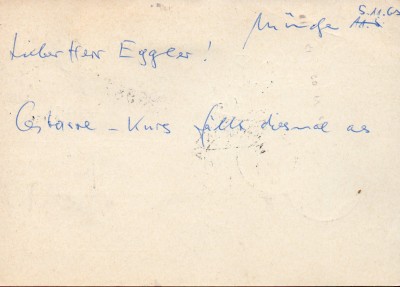 München 5.11.65
Lieber Herr Eggler!
Gitarre - Kurs fällt diesmal aus